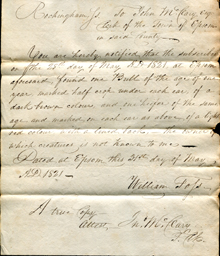 Rockingham Ss. To John McKary Esqr
Clerk of the Town of Epsom
in said County
You are hereby notified that the subscriber
on the day of May AD. 1821 at Epsom
aforesaid found one Bull of the age of one
year marked half each under each ear of a
dark brown colour and one heifer of the same
age and marked on each ear as above of a light
red colour with a lined back the owner of
which creatures is not known to me
Dated at Epsom this 21st day of May
AD. 1821
William Foss
A true Copy
Attest, Jn. McKary
T. Clk.